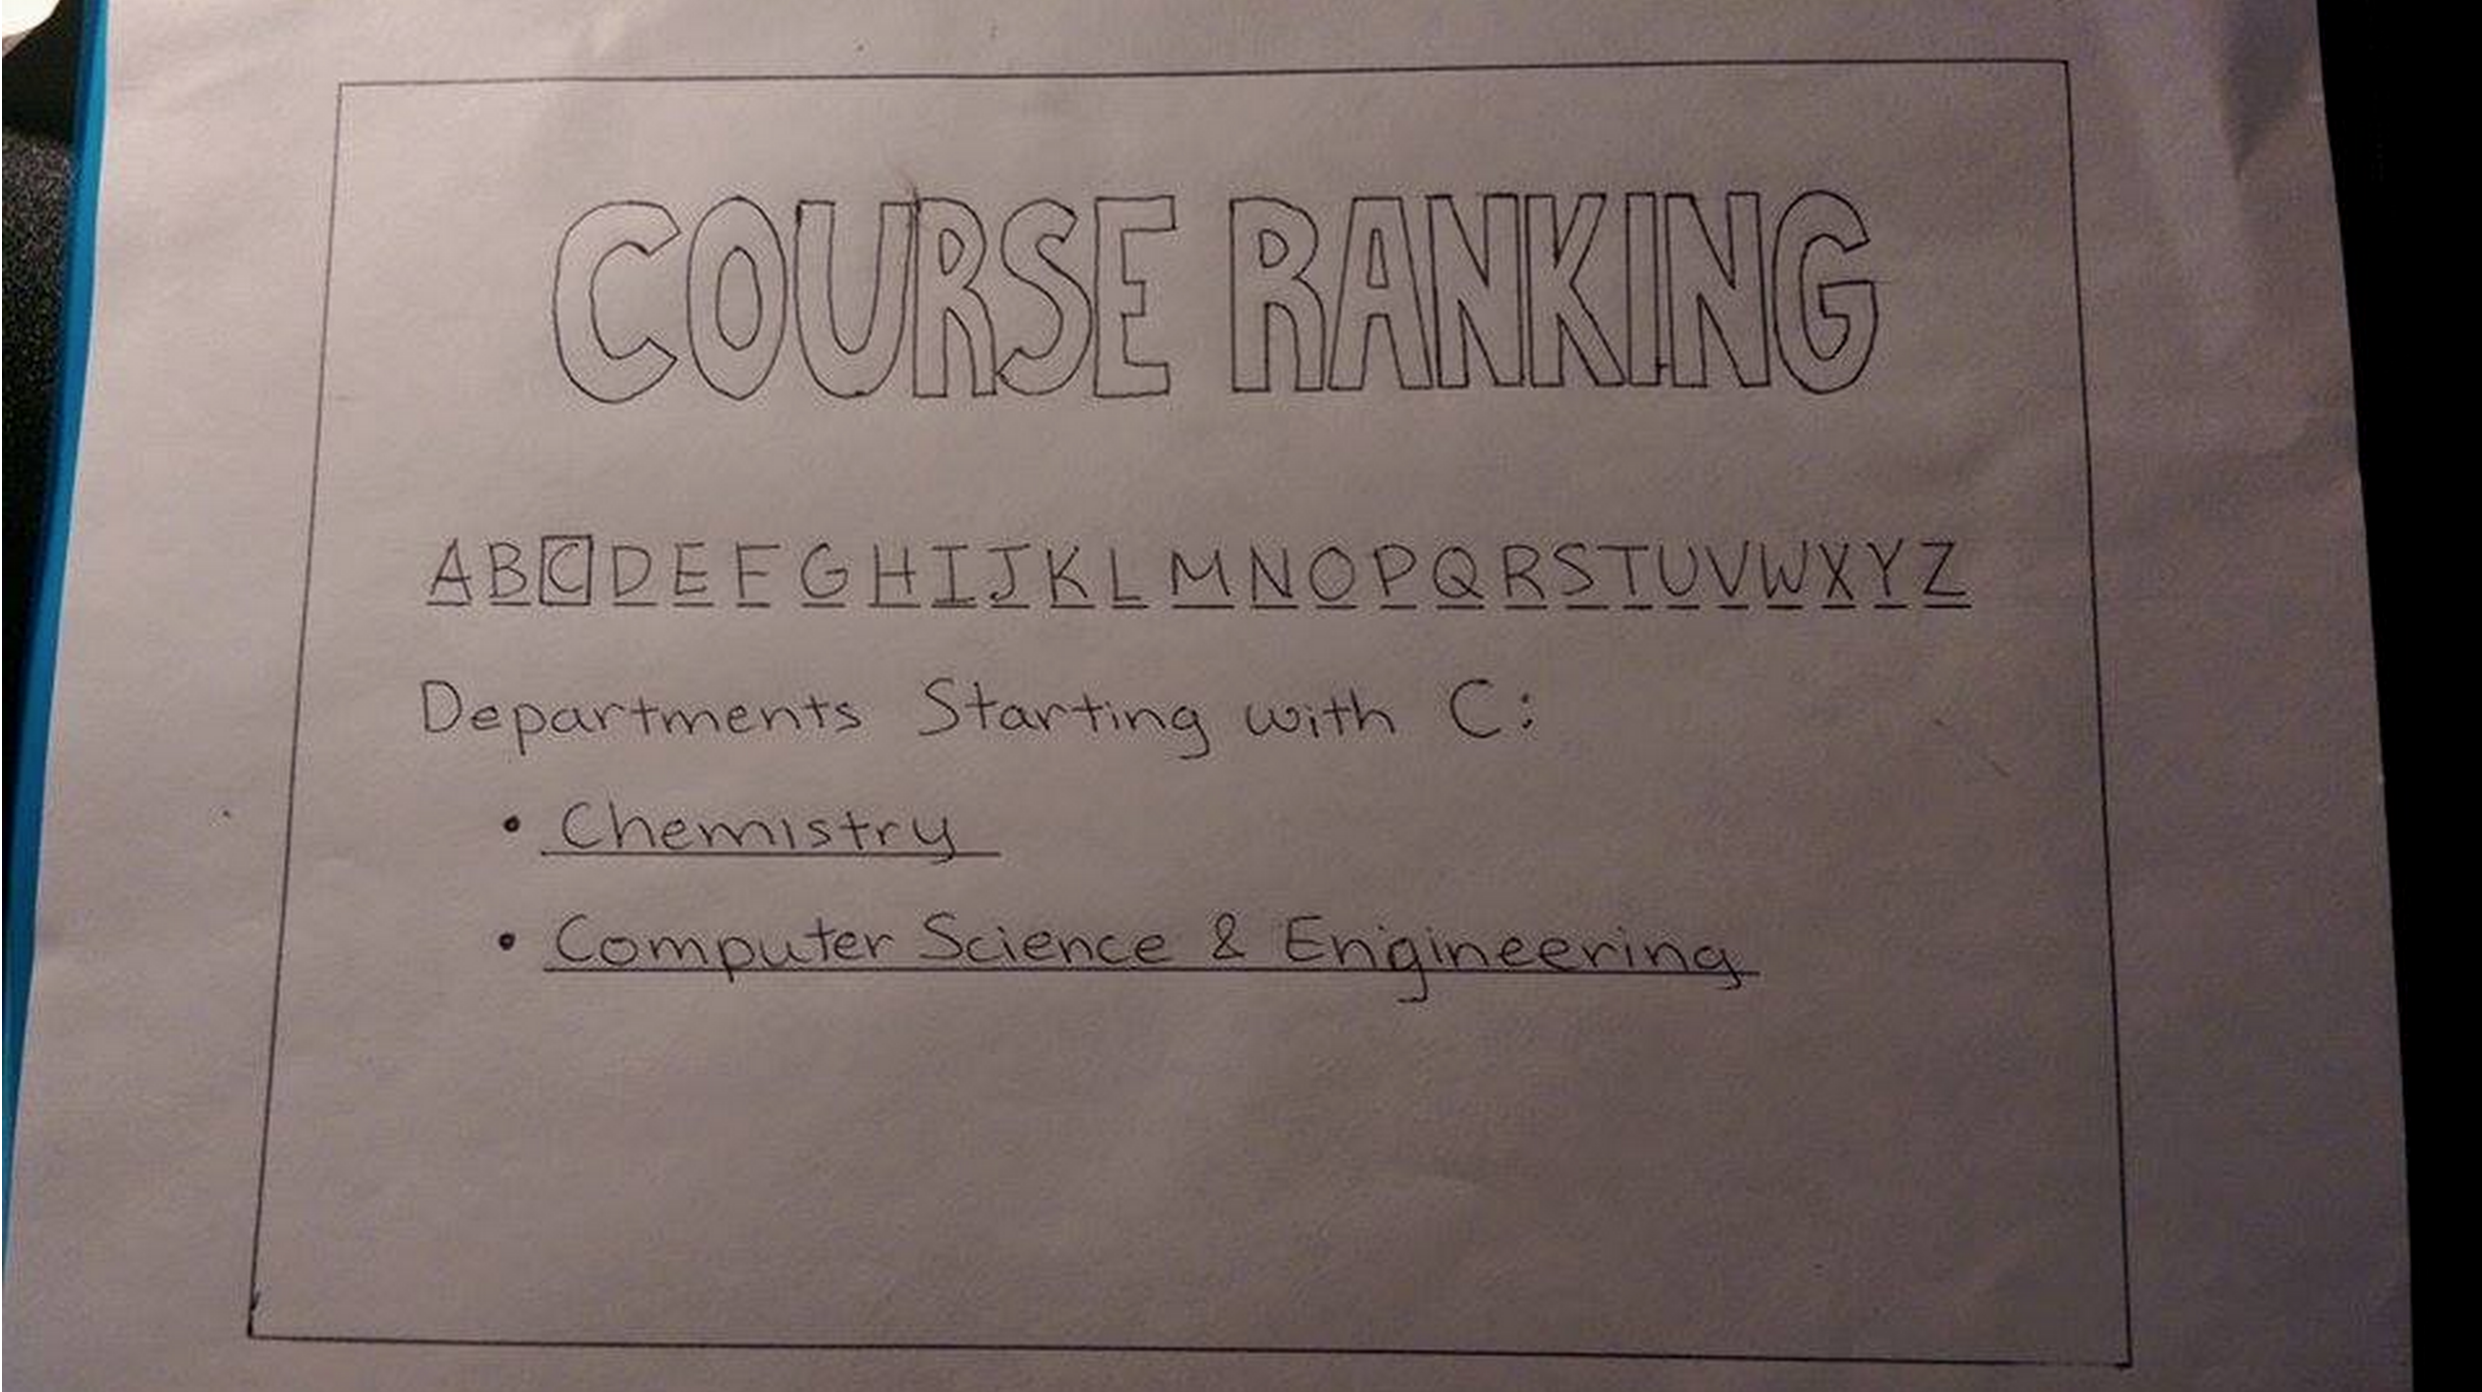 COURSE RANKING
A B C D E F G H I J K L M N O P Q R S T U V W X Y Z
Departments Starting with C:
• Chemistry
• Computer Science & Engineering